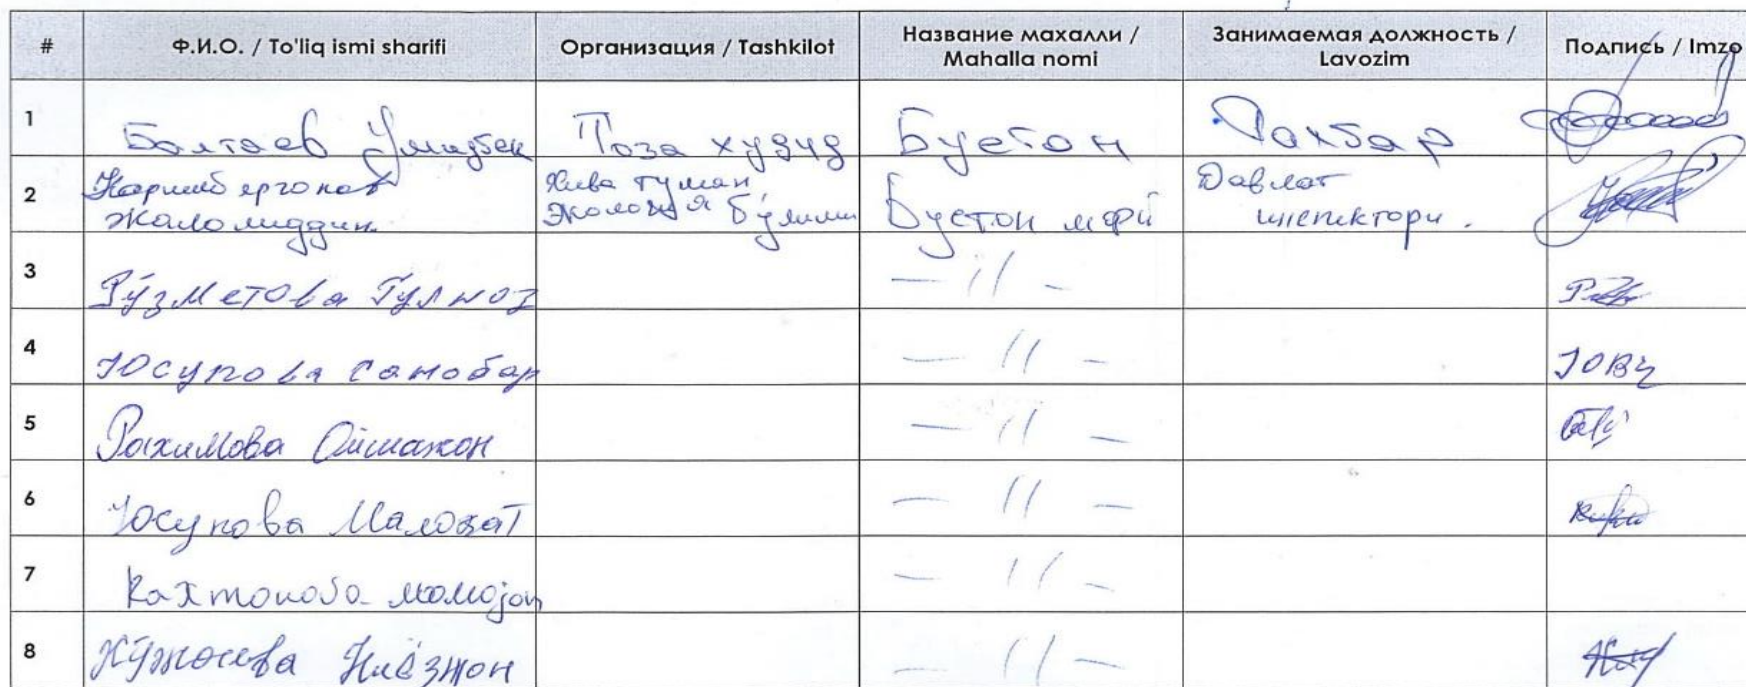 # Ф.И.О. / To'liq ismi sharifi Организация / Tashkilot Название махалли / Mahalla nomi Занимаемая должность / Lavozim Подпись / Imzo
1 Балтаев Умидбек Тоза худуд Бустон Рахбар
2 Каримбергонов Жалолиддин Хива туман Экология бўлими Бустон мфй Давлат инспектори.
3 Рўзметова Гулноз — 11 —
4 Юсупова Санобар — 11 — ЮВЧ
5 Рахимова Ойшажон — 11 —
6 Юсупова Малохат — 11 —
7 — 11 —
8 Ниёзжон — 11 —